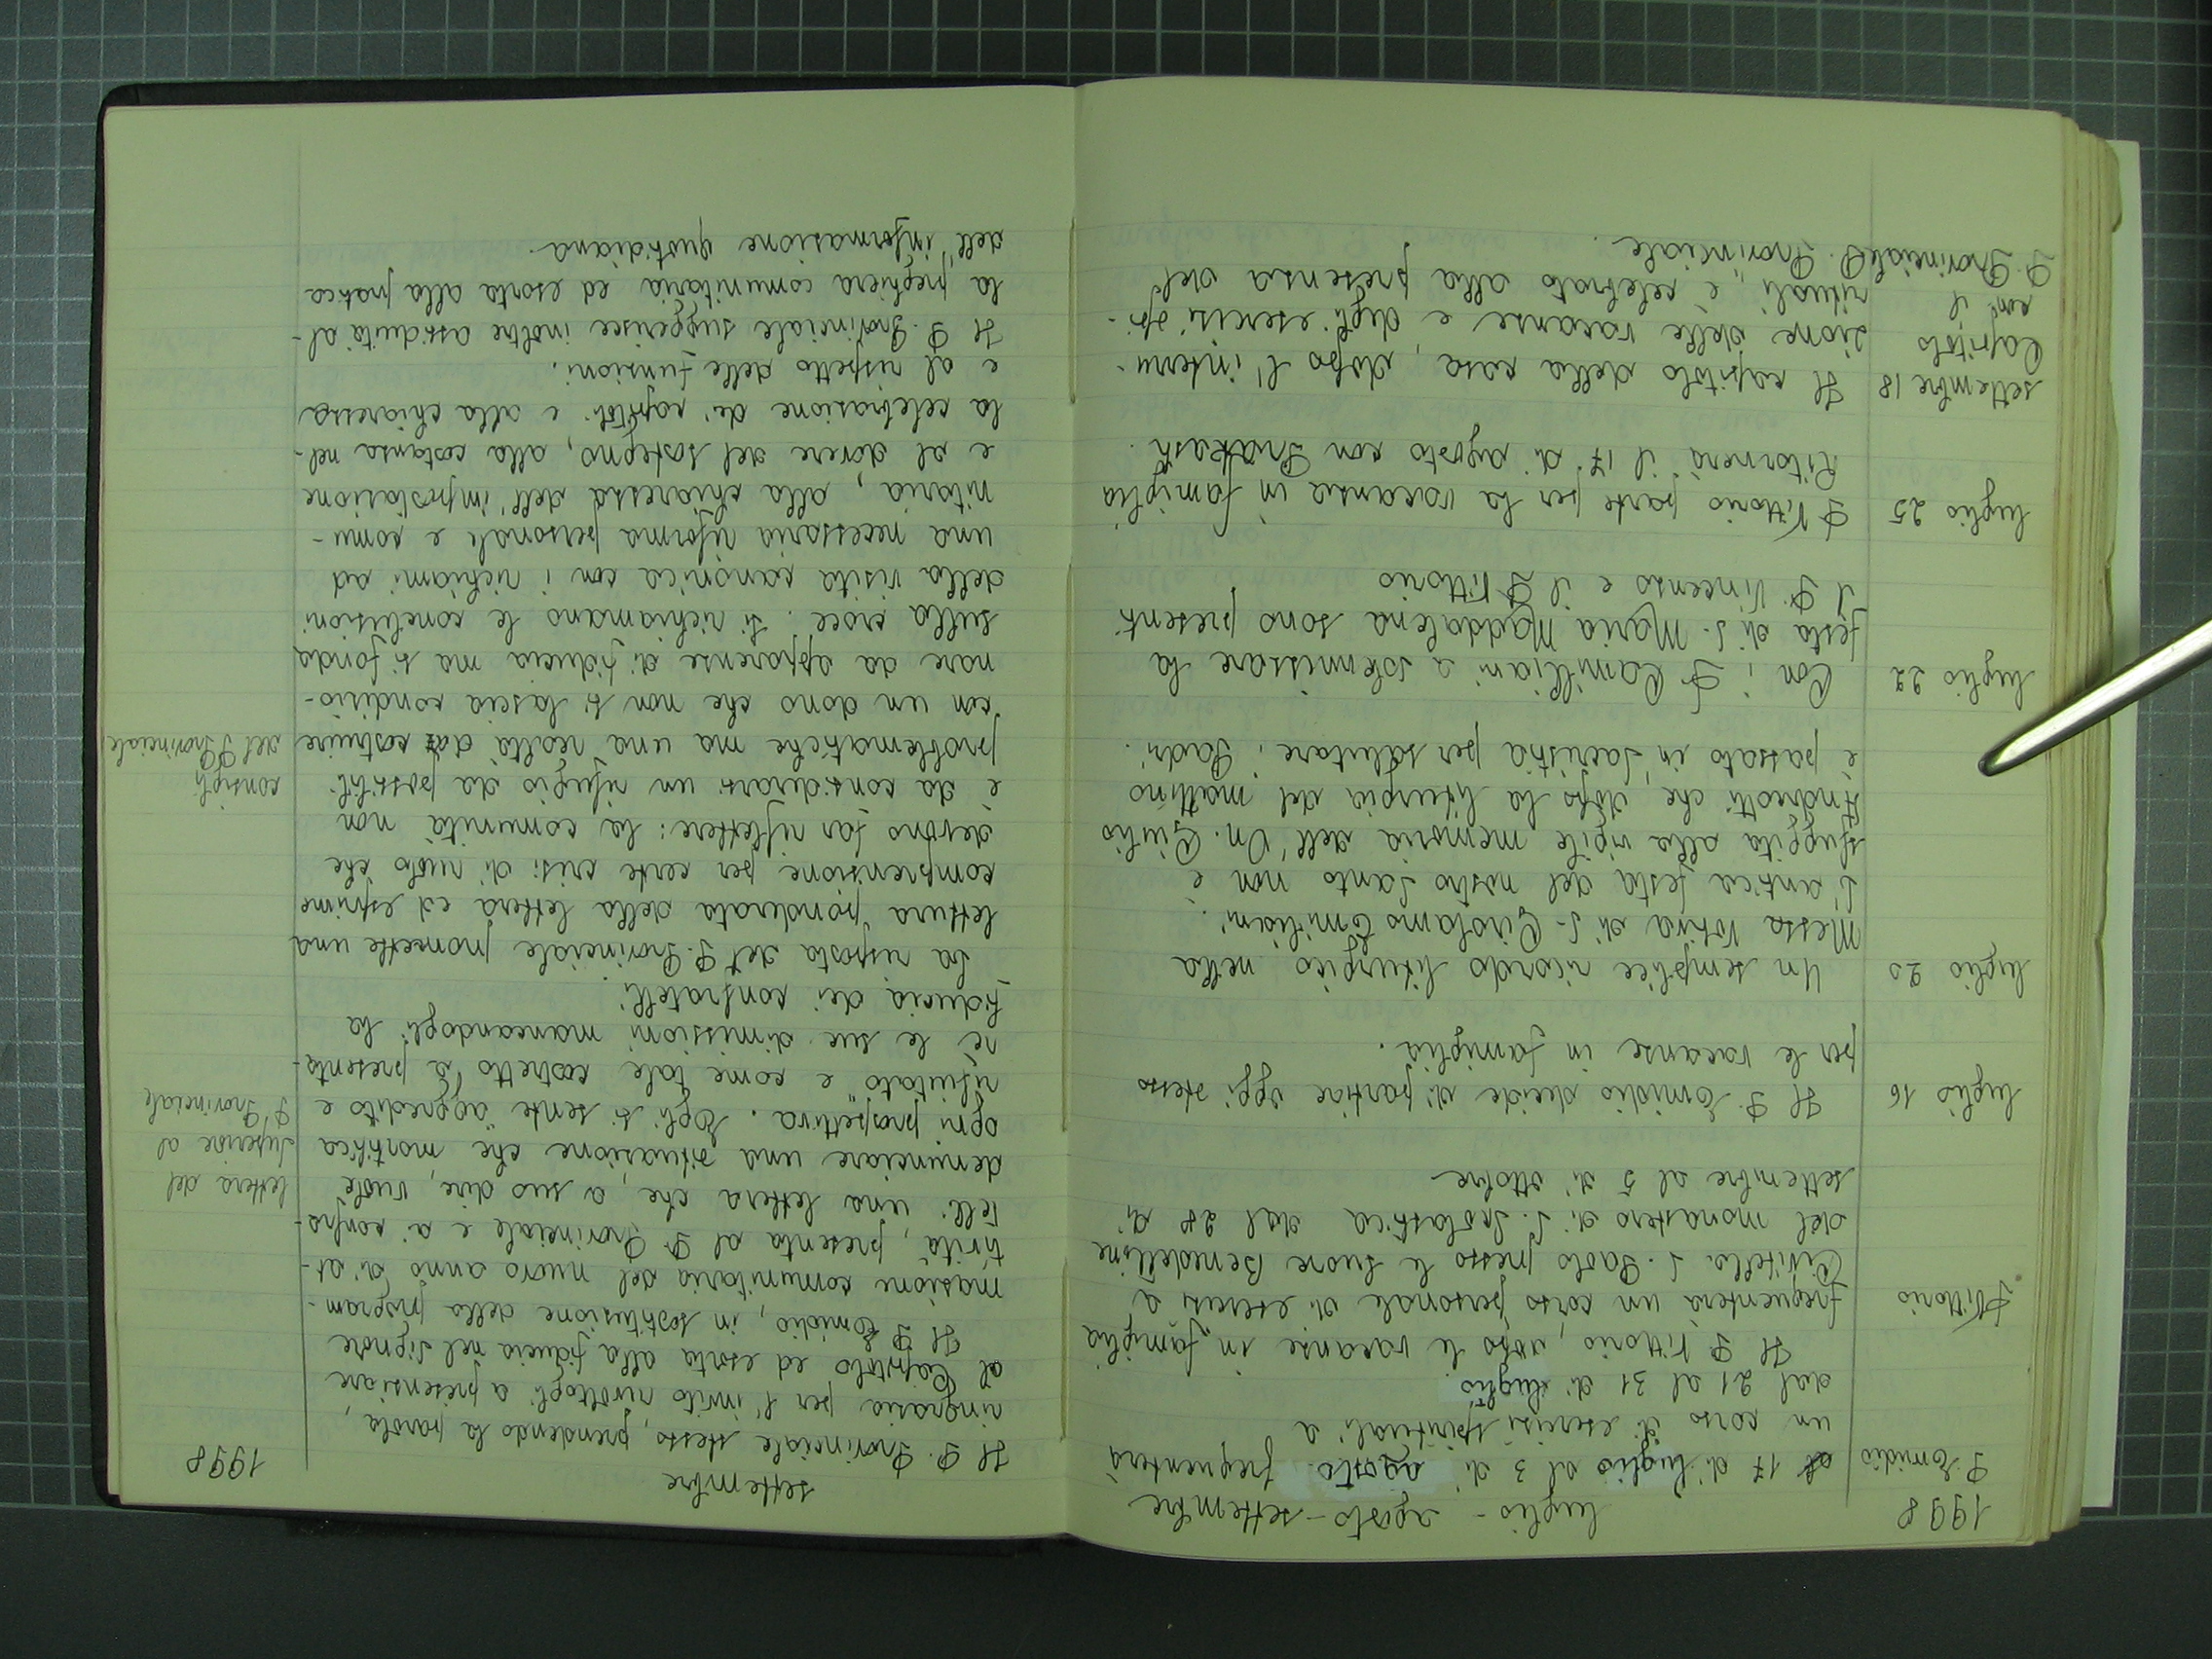 1998
luglio - agosto - settembre
P. Emidio
17 di luglio al 3 di agosto frequenterà
un corso di esercizi spirituali a
dal 21 al 31 di luglio.
Il P. Vittorio, dopo le vacanze in famiglia
P. Vittorio
frequenterà un corso personale di esercizi a
Civitella S. Paolo presso le Suore Benedettine
del monastero di S. Scolastica dal 28 di
settembre al 5 di ottobre
luglio 16
Il P. Emidio decide di partire oggi stesso
per le vacanze in famiglia.
luglio 20
Un semplice ricordo liturgico nella
Messa Votiva di S. Girolamo Emiliani.
L'antica festa del nostro Santo non è
sfuggita alla vigile memoria dell'On. Giulio
Andreotti che, dopo la liturgia del mattino
è passato in Sacristia per salutare i Padri.
luglio 22
Con i P Camilliani a solennizzare la
festa di S. Maria Maddalena sono presenti
il P. Vincenzo e il P Vittorio
luglio 25
P Vittorio parte per la vacanza in famiglia
Ritornerà il 17 di agosto con Prakash.
settembre 18
Il capitolo della casa, dopo l'interru-
Capitolo
zione delle vacanze e degli esercizi spi-
con il
rituali, è celebrato alla presenza del
P. Provinciale
P. Provinciale.
settembre
1998
Il P. Provinciale stesso, prendendo la parola,
ringrazia per l'invito rivoltogli a presenziare
al Capitolo ed esorta alla fiducia nel Signore
Il P Emidio, in sostituzione della program-
mazione comunitaria del nuovo anno di at-
tività, presenta al P Provinciale e ai confra-
telli una lettera che, a suo dire, vuole
lettera del
denunciare una situazione che mortifica
Superiore al
ogni prospettiva. Egli si sente aggredito e
P Provinciale
rifiutato e come tale "costretto" a presenta-
re le sue dimissioni mancandogli la
fiducia dei confratelli.
La risposta del P. Provinciale promette una
lettura ponderata della lettera ed esprime
comprensione per certe crisi di ruolo che
devono far riflettere: la comunità non
è da considerarsi un rifugio da possibili
consigli
problematiche ma una realtà da costruire
del P Provinciale
con un dono che non si lascia condizio-
nare da apparenze di fiducia ma si fonda
sulla croce. Si richiamano le conclusioni
della visita canonica con i richiami ad
una necessaria riforma personale e comu-
nitaria, alla chiarezza dell'impostazione
e al dovere del sostegno, alla costanza nel-
la celebrazione dei capitoli e alla chiarezza
e al rispetto delle funzioni.
Il P. Provinciale suggerisce inoltre assiduità al-
la preghiera comunitaria ed esorta alla pratica
dell'informazione quotidiana.